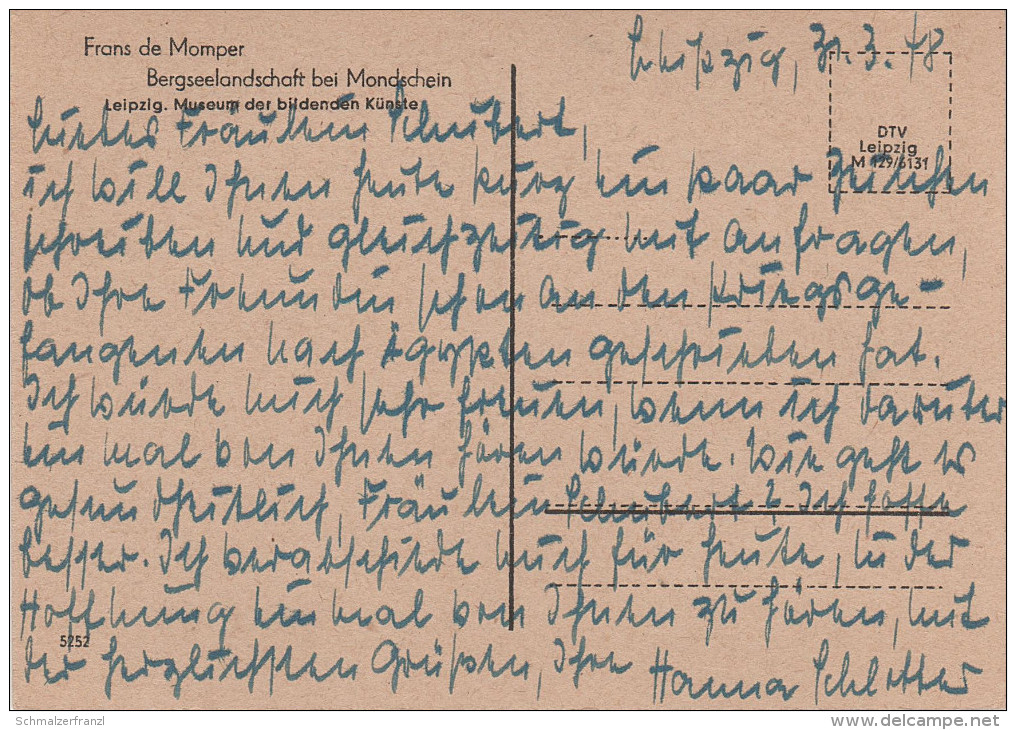 Frans de Momper
Bergseelandschaft bei Mondschein
Leipzig. Museum der bildenden Künste
Leipzig, 31.3.48
DTV
Leipzig
M 129/6131
Liebes Fräulein Schubert,
ich will Ihnen heute kurz ein paar Zeilchen
schreiben und gleichzeitig mit anfragen,
ob Ihre Freundin schon an den Kriegsge-
fangenen nach Ägypten geschrieben hat.
Ich würde mich sehr freuen, wenn ich darüber
einmal von Ihnen hören würde. Wie geht es
gesundheitlich, Fräulein Schubert? Ich hoffe
besser. Ich verabschiede mich für heute, in der
Hoffnung einmal von Ihnen zu hören, mit
der herzlichsten Grüßen, Ihre Hanna Schlotter
5252
Schmalzerfranzl
www.delcampe.net